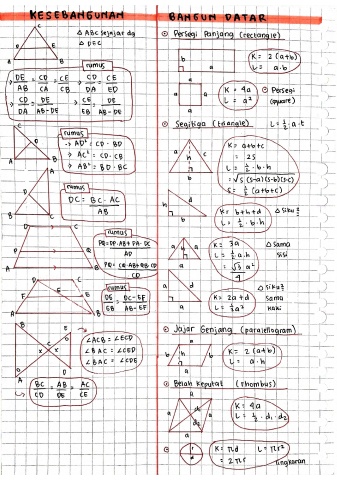 KESEBANGUNAN
Δ ABC sejajar dg
Δ DEC
rumus
DE/AB = CD/CA = CE/CB → CD/DA = CE/
→ CD/DA = DE/AB-DE → CE/EB = DE/AB-DE
rumus
→ AD² = CD·BD
→ AC² = CD·CB
→ AB² = BD·BC
rumus
DC = BC·AC/AB
rumus
rumus
∠ACB = ∠ECD
∠BAC = ∠CED
BC/CD = AB/DE = AC/CE
BANGUN DATAR
Persegi Panjang (rectangle)
K = 2(a+b)
L = a·b
K = 4a
L = a²
Persegi
(square)
Segitiga (triangle) L = ½ a·t
K = a+b+c
= 2S
L = ½·b·h
= √S(S-a)(S-b)(S-c)
S = ½(a+b+c)
K = b+h+d
L = ½·b·h
Δ siku²
K = 3a
= ½a.h
Δ sama
sisi
K = 2a+d
L = ½a²
Δ siku²
sama
kaki
Jajar Genjang (parallelogram)
K = 2(a+b)
L = a·h
Belah Ketupat (rhombus)
K = 4a
L = ½·d₁·d₂
K = πd
= 2πr
L = πr²
lingkaran